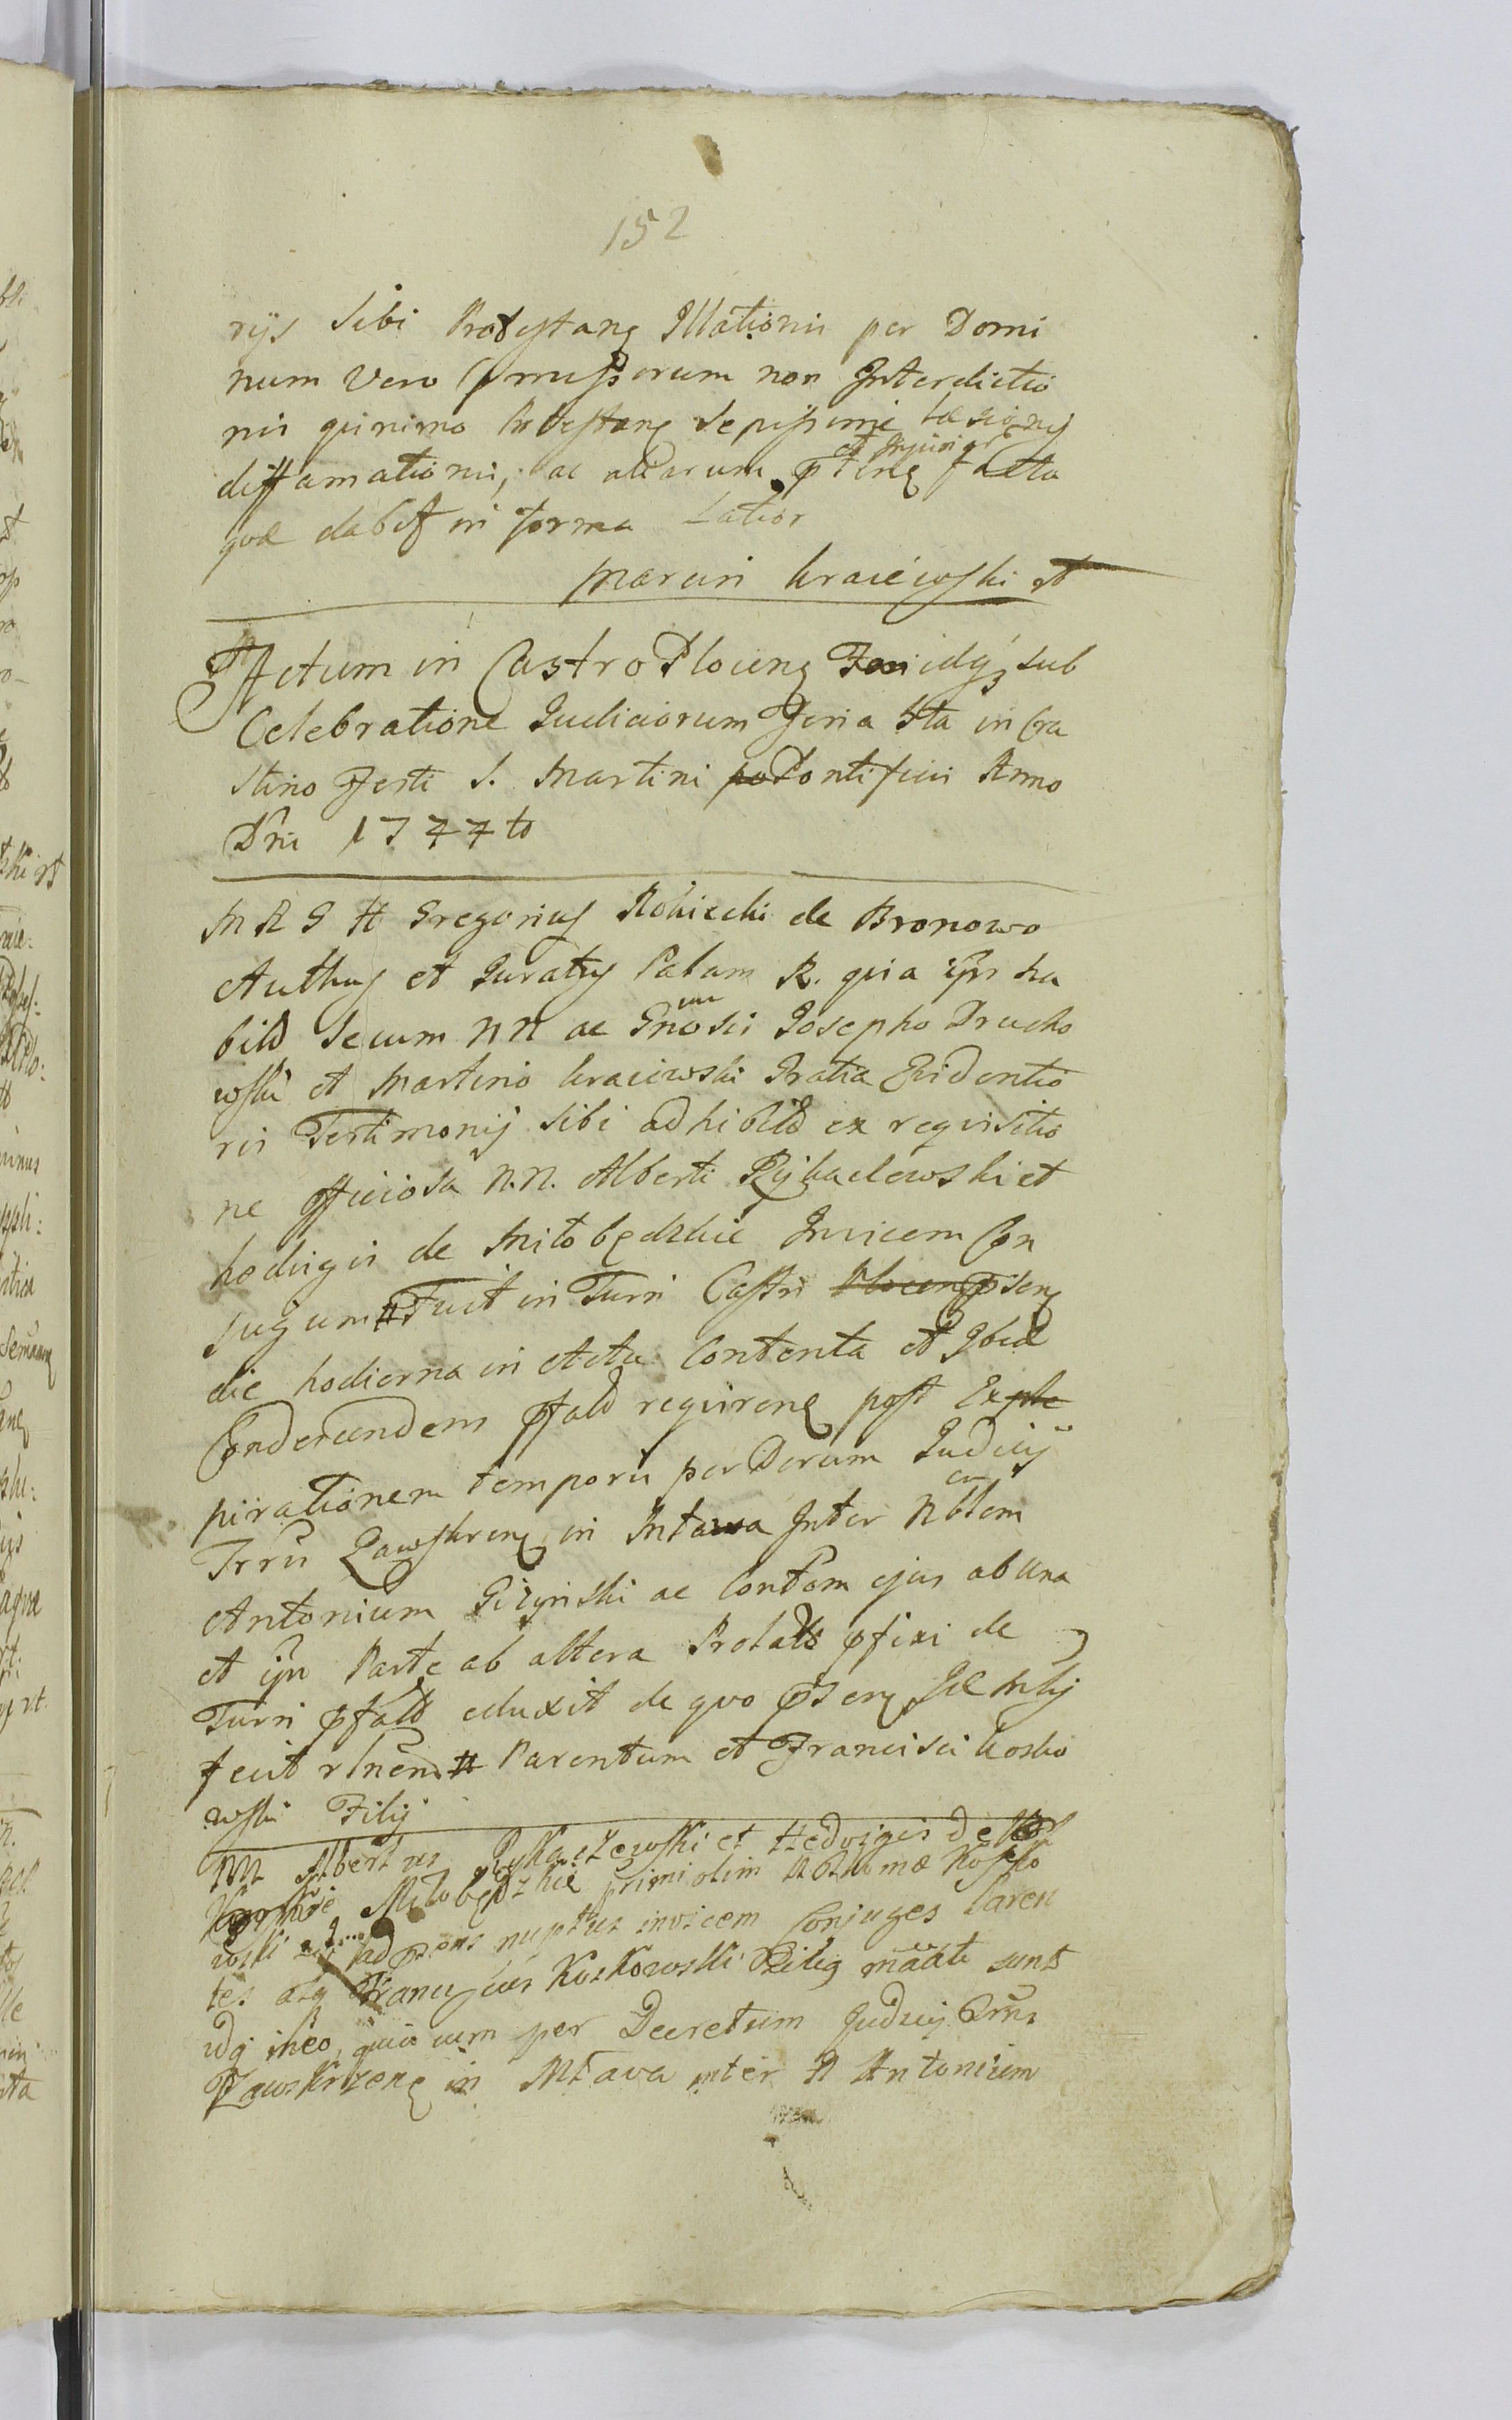 152
rijs sibi Protestanę Illationis per Domi
num Vero Pmissorum non Interdictio
nis quinimo Protestanę Sepissime Læsionis
et Injuriar
diffamationis, ac aliarum ptinę facta
quæ dabit in forma Latior
Marcin Kraiewski rt
Actum in Castro Plocenę Feriidqz sub
Celebratione Iudiciorum Feria 5ta in Cra
stino Festi S. Martini Pontificis Anno
Dni 1744to
MRG H Gregorius Rokicki de Bronowo
Authus et Iuratus Palam R. quia ips ha
bitis secum NN ac Gnosis Iosepho Drucho
wski et Martino Kraiewski Gratia Evidentio
ris Testimonij sibi adhibitis ex requisitio
ne officiosa N.N. Alberti Rykaclewski et
hedvigis de Miłobędzkie Invicem Con
jugum # Fuit in Turri Castri Plocenę psenę
die hodierna in Actu Contenta et Ibid
Condescendem pfatis requirenę post Ex
pirationem temporis per Decrum Iudicij
Trris Zawskrenę in Mława Inter Nblem
Antonium Giżyński ac Contem ejus ab una
et ijn Parte ab altera Prolatis pfixi de
Turri pfatis eduxit de quo psenę Suam
fecit rlnem # Parentum et Francisci Kosko
wski Filij
NN Albertus Rykaczewski et Hedvigis de
Miłobędzkie primi olim N Thomæ Kosko
wski ad psens nuptus invicem Conjuges Paren
tes atq Franciscus Koskowski Filig māāti sunt
idq ineo, quia cum per Decretum Judicij Trris
Zawskrzenę in Mława inter N Antonium